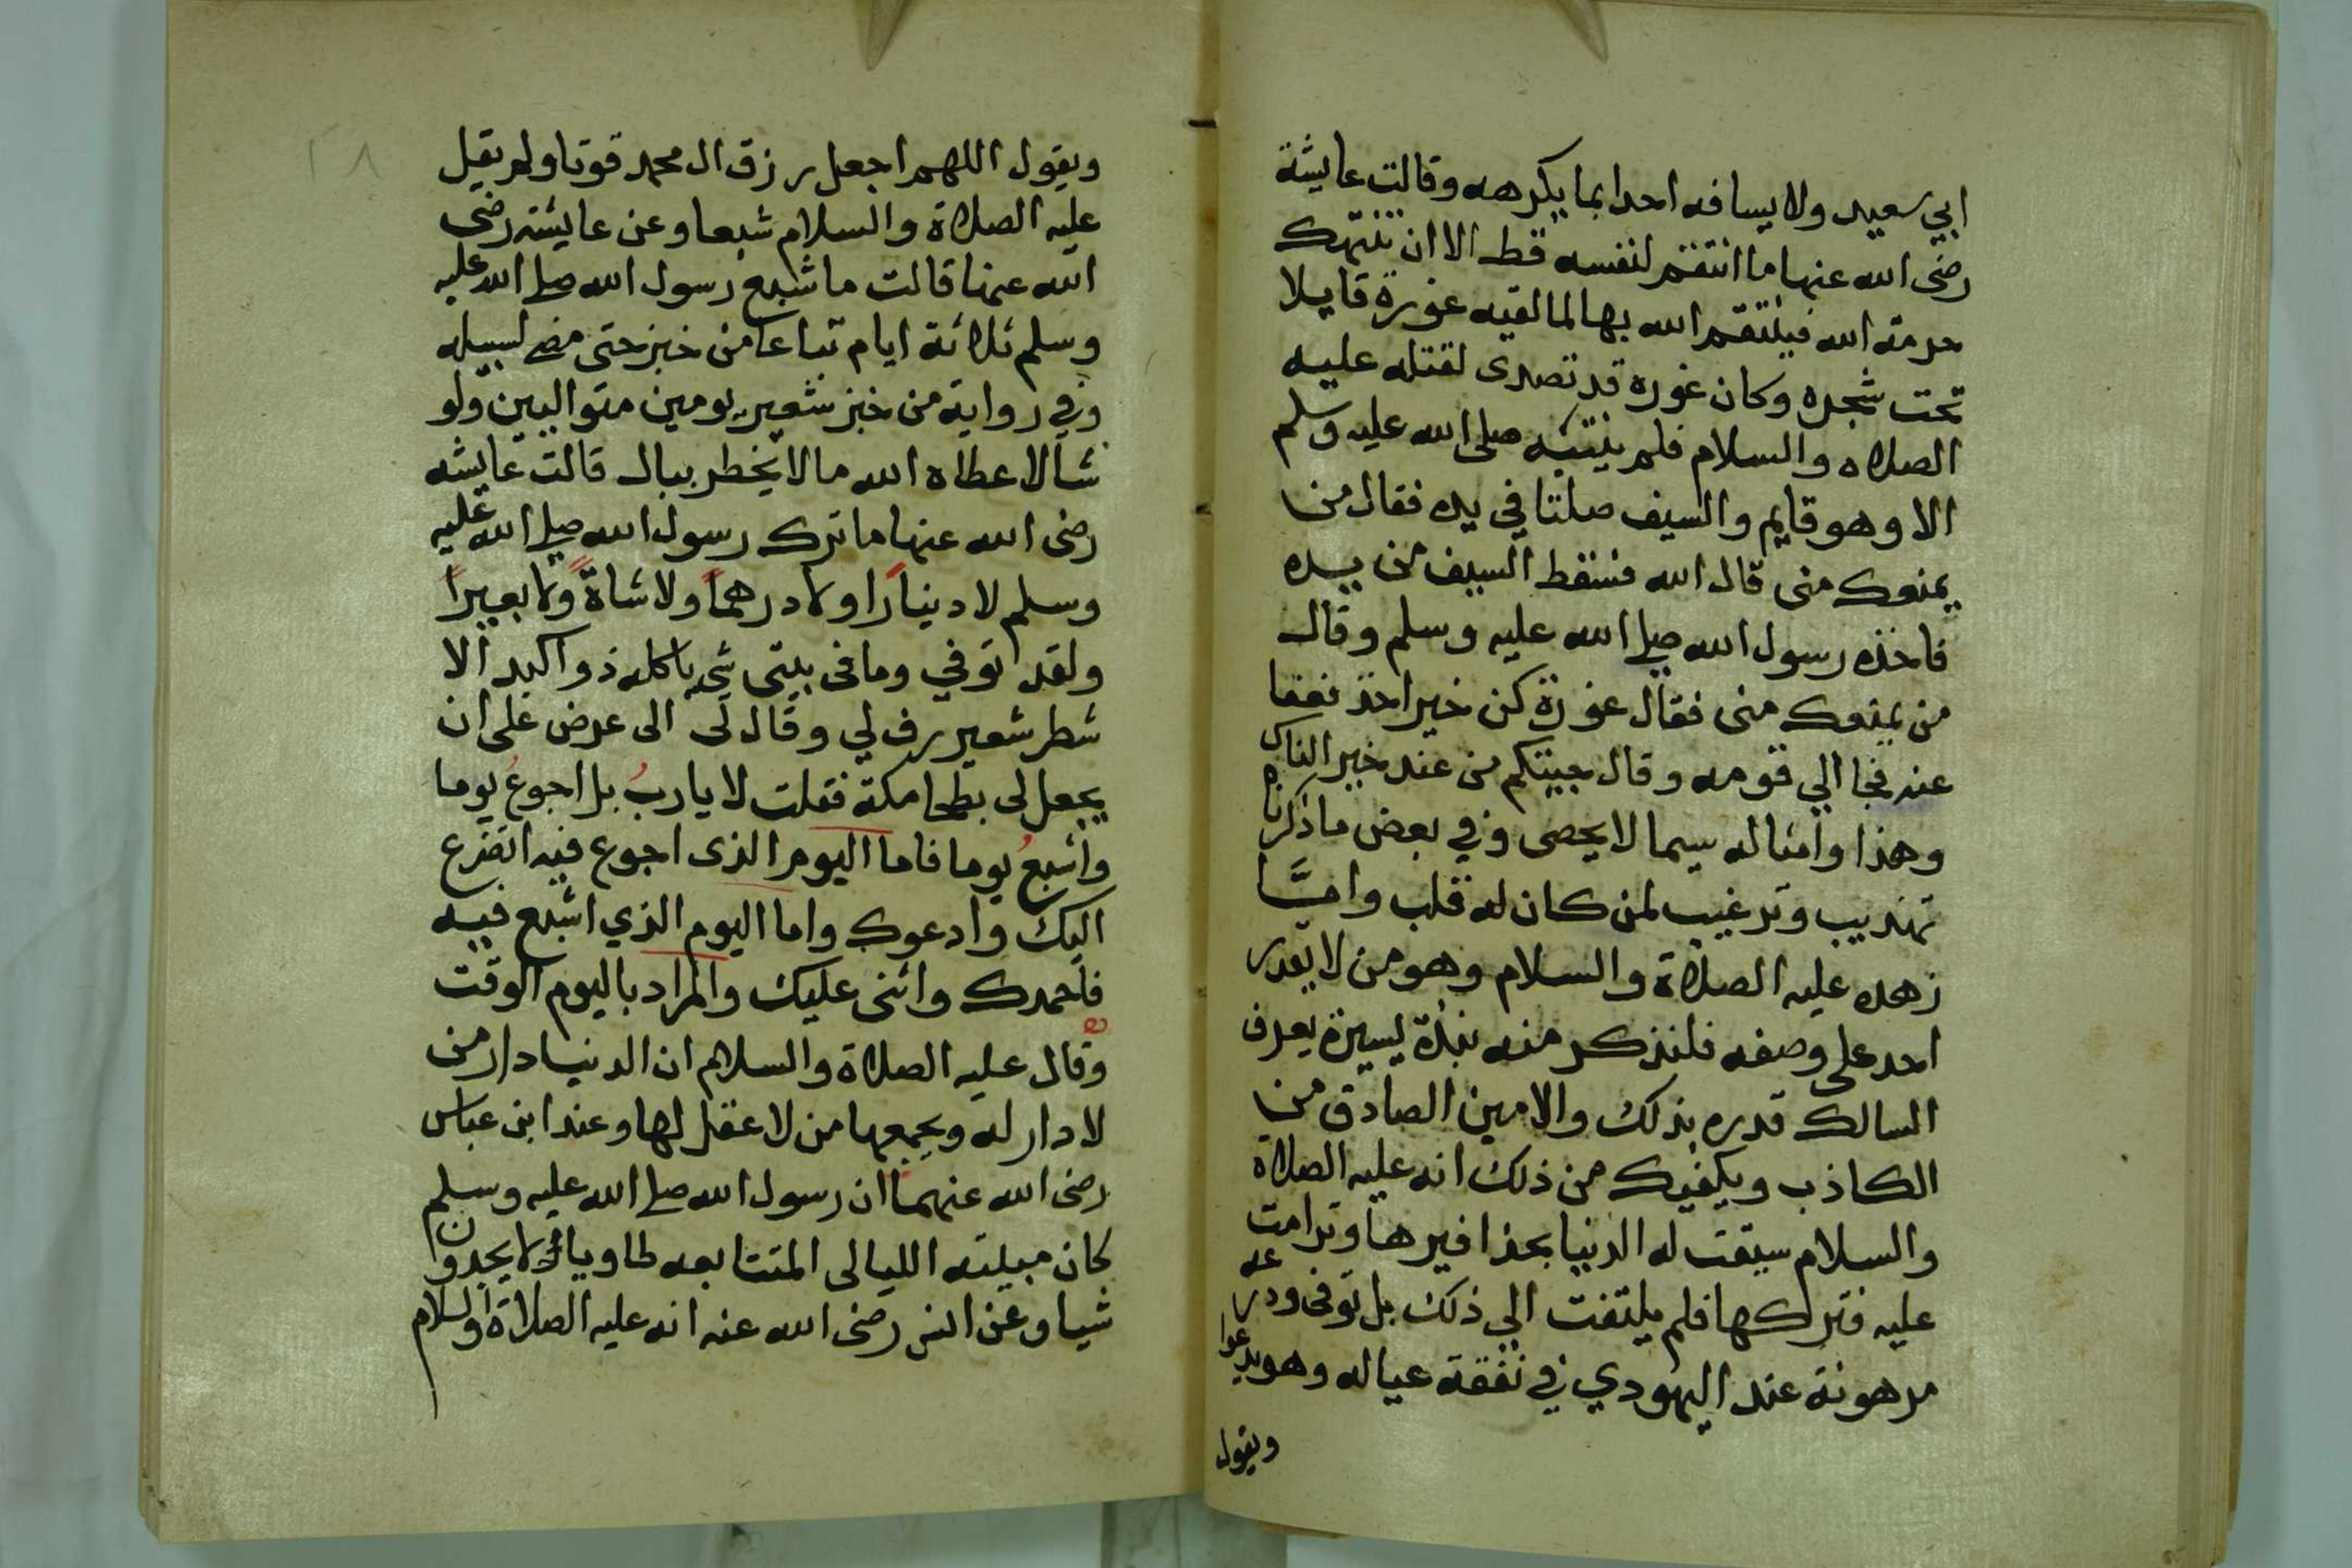 ابي سعيد ولا يسافه احدا بما يكرهه وقالت عايشة
رضى الله عنها ما انتقم لنفسه قط الا ان تنتهك
حرمة الله فينتقم الله بها لما لقيه غورة قايلا
تحت شجره وكان غوره قد تصدى لقتله عليه
الصلاه والسلام فلم ينتبه صلى الله عليه وسلم
الا وهو قايم والسيف صلتا في يده فقال من
يمنعك منى قال الله فسقط السيف من يده
فاخذه رسول الله صلى الله عليه وسلم وقال
من يمنعك منى فقال غورة كن خير اخذ فعفا
عنه فجا الي قومه وقال جيتكم من عند خير الناس
وهذا وامثاله سيما لا يحصى وفي بعض ما ذكرناه
تهذيب وترغيب لمن كان له قلب وامَّا
زهده عليه الصلاة والسلام وهو من لا يقدر
احد على وصفه فلنذكر منه نبذة يسيرة يعرف
السالك قدره بذلك والامين الصادق من
الكاذب ويكفيك من ذلك انه عليه الصلاة
والسلام سيقت له الدنيا بحذافيرها وترامت
عليه فتركها فلم يلتفت الي ذلك بل توفى ودرعه
مرهونة عند اليهودي في نفقة عياله وهو يدعوا
ويقول
١٨
ويقول اللهم اجعل رزق ال محمد قوتا ولم يقل
عليه الصلاة والسلام شبعا وعن عايشة رضى
الله عنها قالت ما شبع رسول الله صلى الله عليه
وسلم ثلاثة ايام تباعا من خبز حتى مضى لسبيله
وفي رواية من خبز شعير يومين متواليين ولو
شا لاعطاه الله ما لا يخطر ببال قالت عايشه
رضى الله عنها ما ترك رسول الله صلى الله عليه
وسلم لا دينارًا ولا درهمًا ولا شاةً ولا بعيرًا
ولقد توفي وما فى بيتى شى ياكله ذو اكبد الا
شطر شعير رف لي وقال لى الى عرض على ان
يجعل لى بطحا مكة فقلت لا يا ربُ بل اجوعُ يوما
واشبعُ يوما فاما اليوم الذى اجوع فيه اتضرع
اليك وادعوك واما اليوم الذي اشبع فيه
فاحمدك واثنى عليك والمراد باليوم الوقت
وقال عليه الصلاة والسلام ان الدنيا دار من
لا دار له ويجمعها من لا عقل لها وعند ابن عباس
رضى الله عنهما ان رسول الله صلى الله عليه وسلم
كان مبيلته الليالى المتتابعه طاويا لا يجدون
شيا وعن انس رضى الله عنه انه عليه الصلاة والسلام